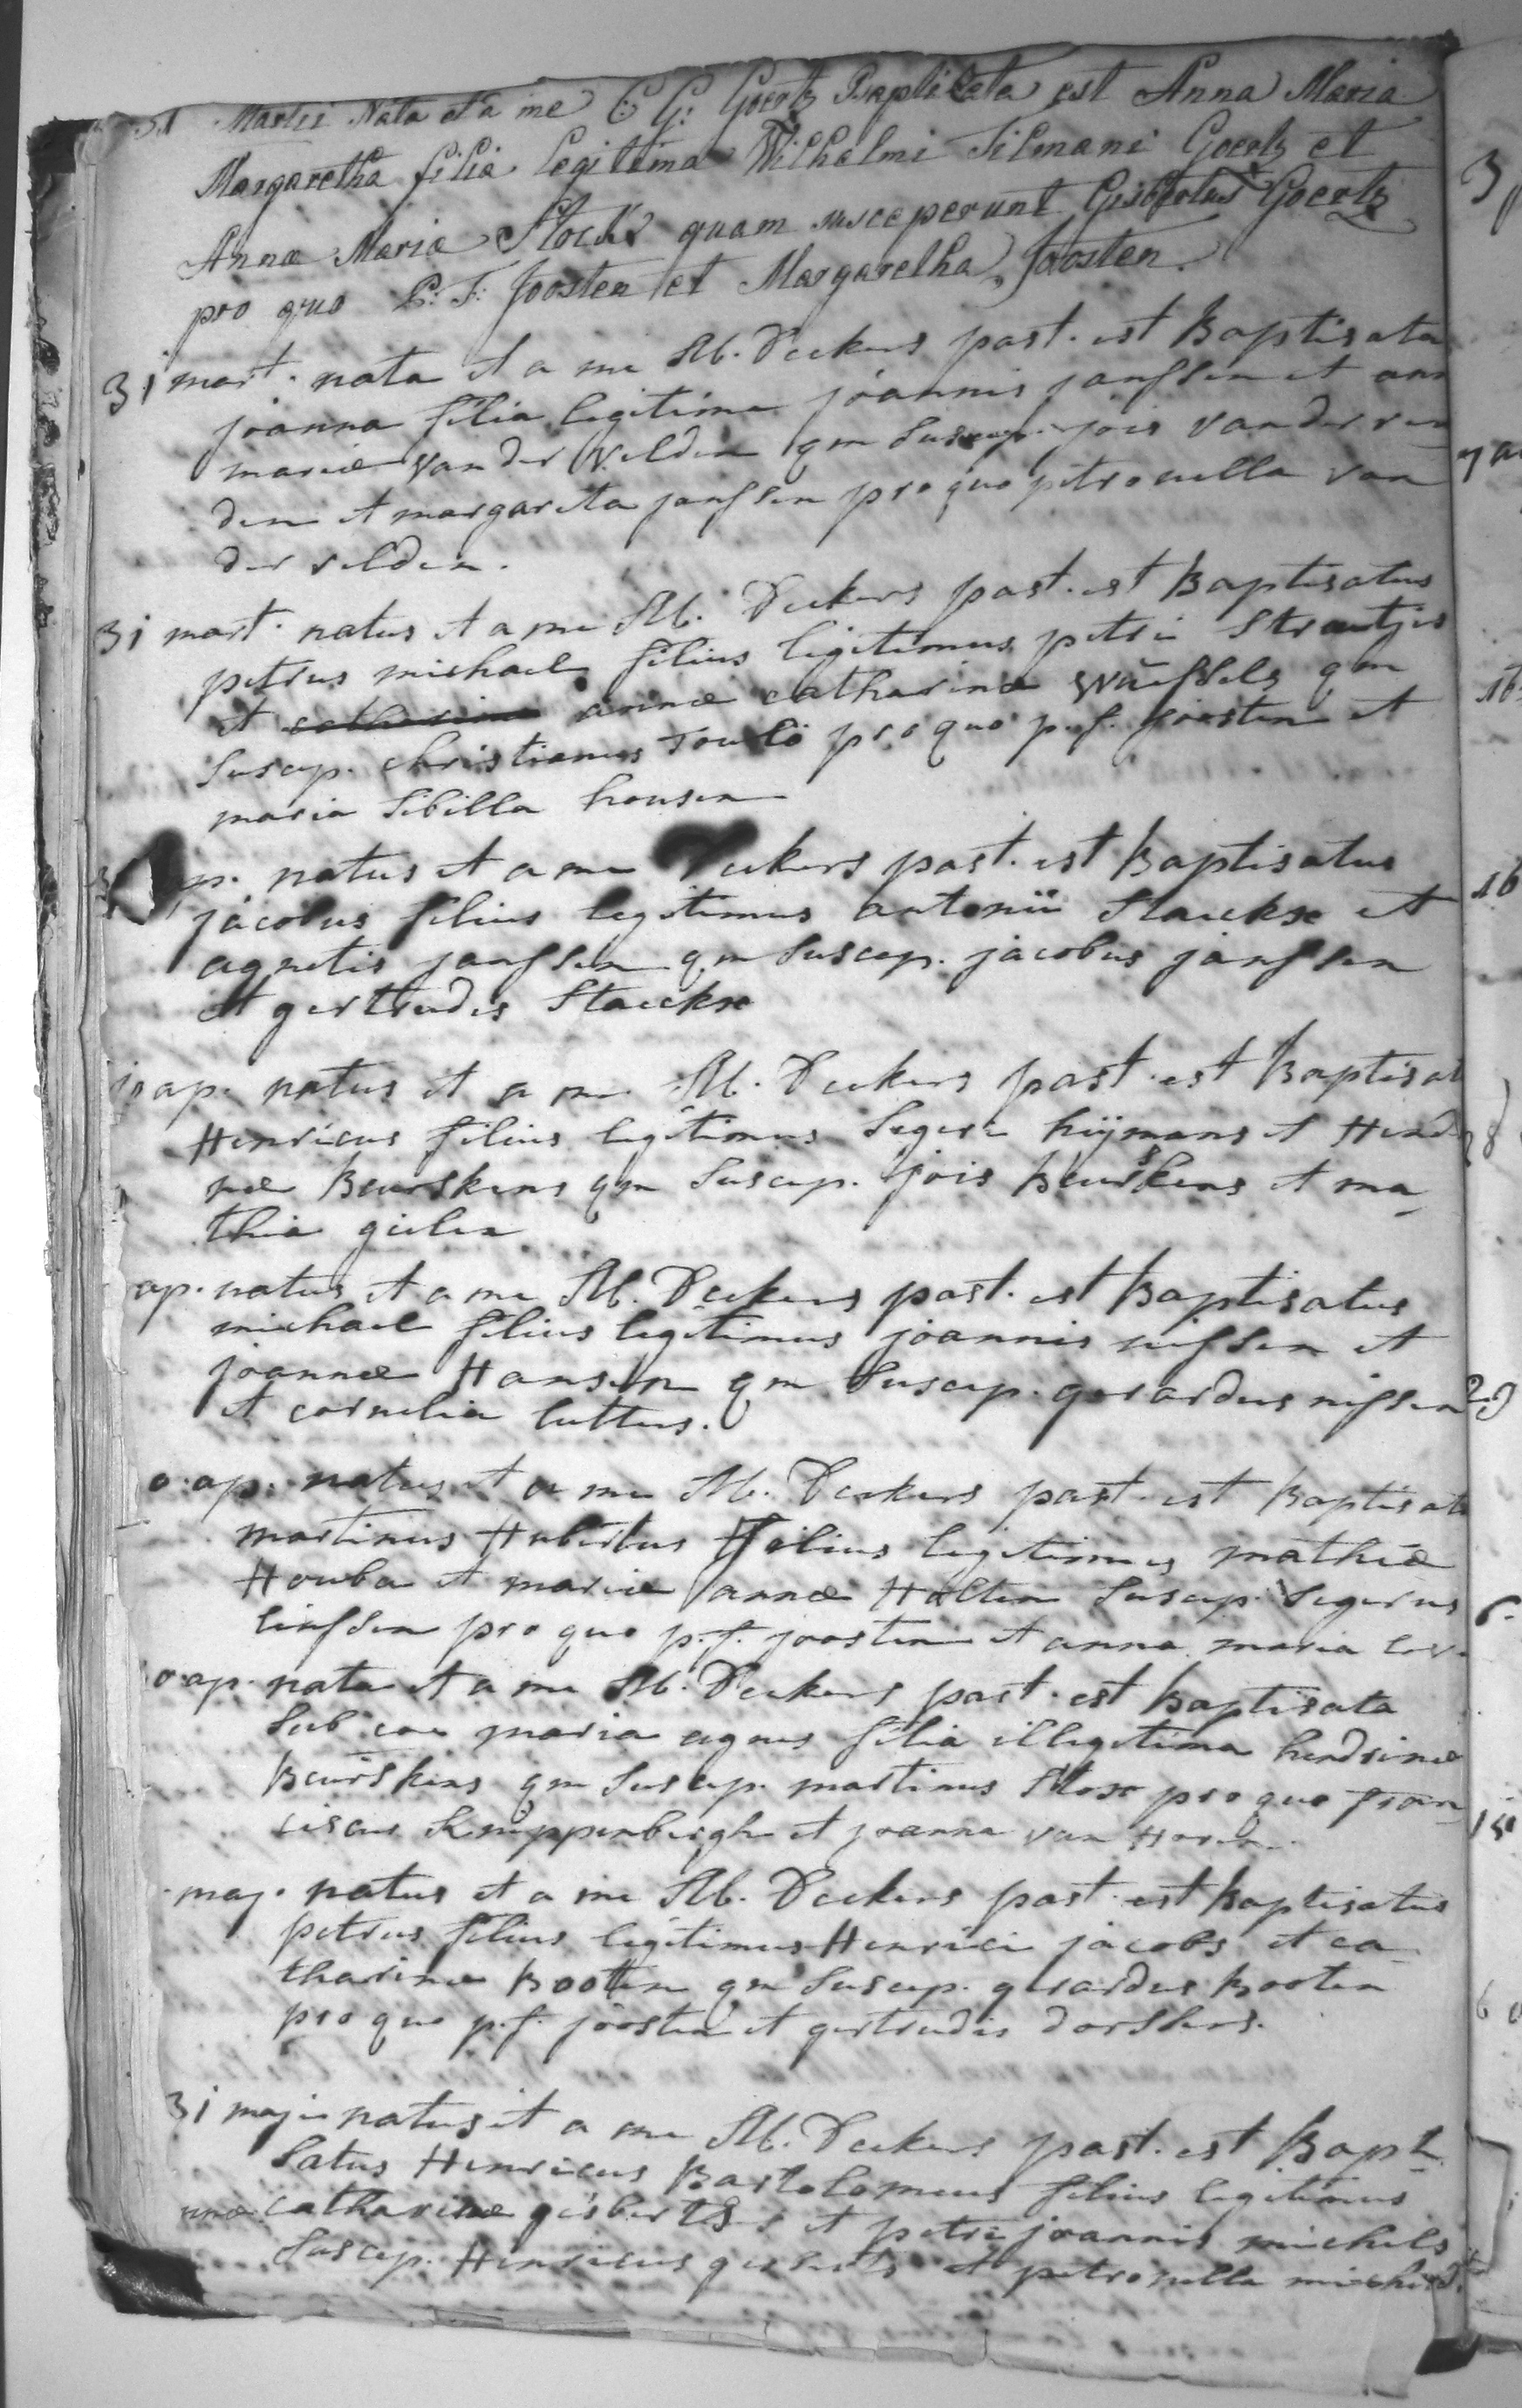 31 Martii Nata et a me C: G: Goertz Baptisata est Anna Maria
Margaretha filia legitima Wilhelmi Tilmani Goertz et
Annæ Mariæ Stockx quam susceperunt Gisbertus Goertz
pro quo P: F: Joosten et Margaretha Joosten.
31 mart. nata et a me M. Deckers past. est Baptisata
joanna filia legitima joannis janssen et ann
mariæ van der velden qm suscep. jois van der vel
den et margarita janssen pro quo petronella van
der velden.
31 mart. natus et a me M. Deckers past. est Baptisatus
petrus michael filius legitimus petri Strautjes
et annæ catharinæ qm
suscep. christianus pro quo p. f. joosten et
maria sibilla housen
ap. natus et a me Deckers past. est Baptisatus
jacobus filius legitimus antonii Staeckx et
agnetis janssen qm suscep. jacobus janssen
et gertrudis Staeckx
10 ap. natus et a me M. Deckers past. est Baptisat
Henricus filius legitimus Segeri hijmans et Hend
næ Beurskens qm suscep. jois Beurskens et ma
thia gielen
ap. natus et a me M. Deckers past. est Baptisatus
michael filius legitimus joannis nissen et
joannæ Hansen qm suscep. gerardus nissen
et cornelia luttens.
0 ap. natus et a me M. Deckers past. est Baptisatu
martinus Hubertus filius legitimus mathiæ
Houba et mariæ annæ Holten suscep. Segerus
linssen pro quo p. f. joosten et anna maria
0 ap. nata et a me M. Deckers past. est Baptisata
sub con maria agnes filia illegitima hendrinæ
Beurskens qm suscep. martinus Stox pro quo fran
ciscus Knippenbergh et joanna van
maj. natus et a me M. Deckers past. est Baptisatus
petrus filius legitimus Henrici jacobs et ca
tharinæ Booten qm suscep. gerardus Booten
pro quo p. f. joosten et gertrudis dorssers.
31 maji natus et a me M. Deckers past. est Bapti
satus Henricus Bartolomeus filius legitimus
nnæ catharinæ gisberts et petri joannis michels
suscep. Henricus gisberts et petronella michels